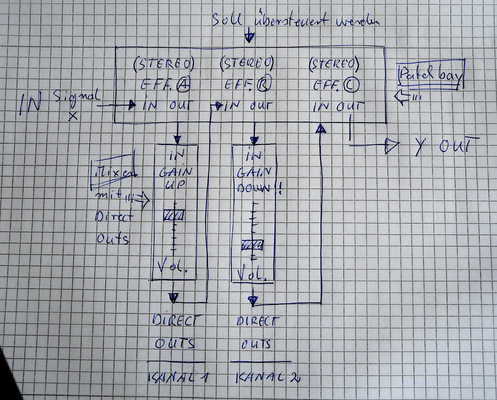 Soll übersteuert werden
(STEREO) (STEREO) (STEREO)
EFF. A EFF. B EFF. C
Patchbay
IN Signal X
IN OUT IN OUT IN OUT
Y OUT
IN
GAIN
UP
IN
GAIN
DOWN!!
Mixer
mit
Direct
Outs
VOL.
VOL.
DIRECT
OUTS
DIRECT
OUTS
KANAL 1 KANAL 2